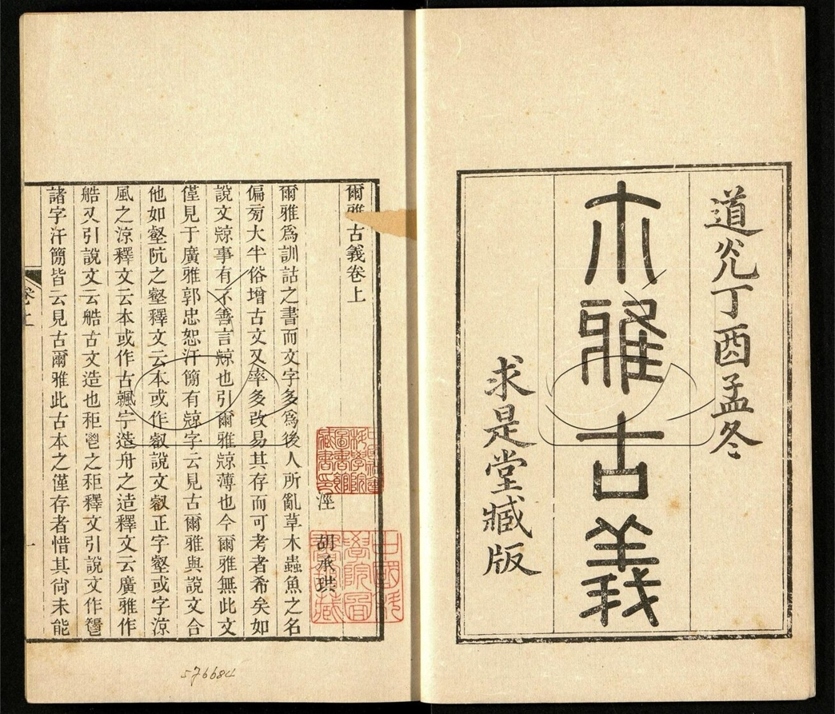 道光丁酉孟冬
尒雅古義
求是堂藏版
爾雅古義卷上
涇 胡承珙
爾雅爲訓詁之書而文字多爲後人所亂草木蟲魚之名
偏旁大半俗增古文又率多改易其存而可考者希矣如
說文䝶事有不善言䝶也引爾雅䝶薄也今爾雅無此文
僅見于廣雅郭忠恕汗簡有䝶字云見古爾雅與說文合
他如壑阬之壑釋文云本或作叡說文叡正字壑或字涼
風之涼釋文云本或作古飊字造舟之造釋文云廣雅作
艁又引說文云艁古文造也秬鬯之秬釋文引說文作𩰤
諸字汗簡皆云見古爾雅此古本之僅存者惜其尙未能
卷上
一
576684